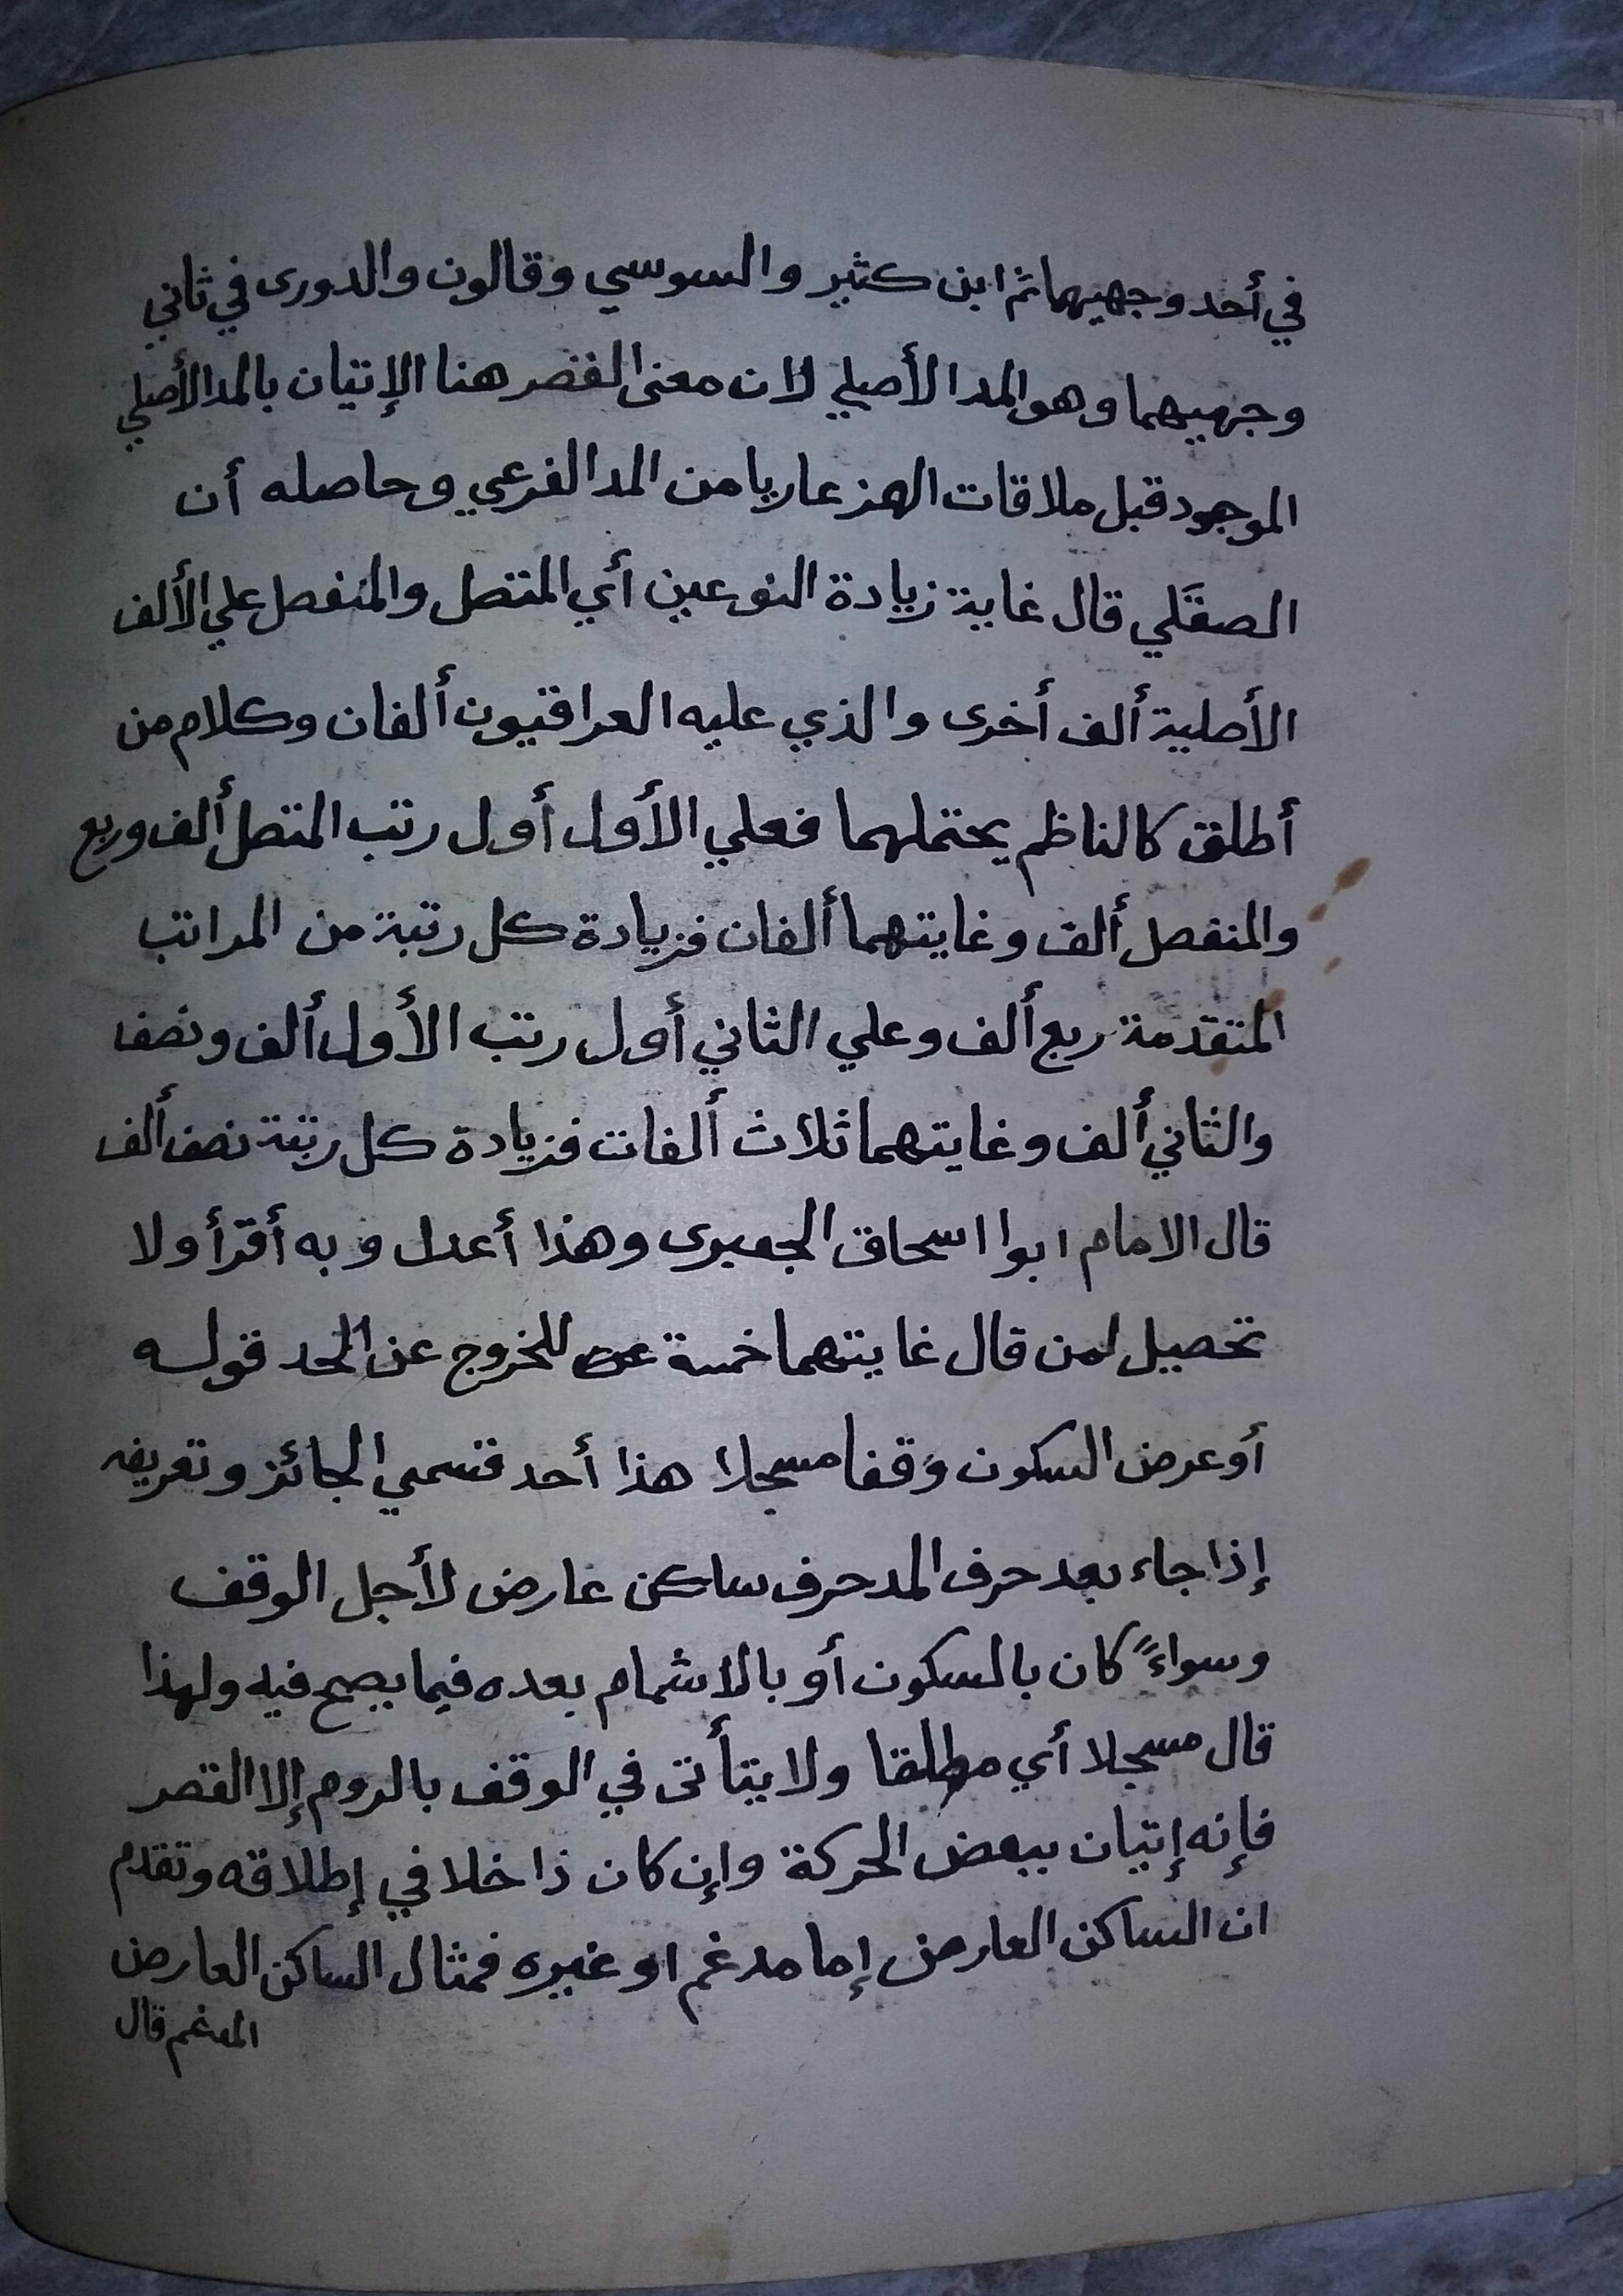 في أحد وجهيهما ثم ابن كثير والسوسي وقالون والدورى في ثاني
وجهيهما وهو المد الأصلي لان معنى القصر هنا الإتيان بالمد الأصلي
الموجود قبل ملاقات الهمز عاريا من المد الفرعي وحاصله أن
الصقلي قال غاية زيادة النوعين أي المتصل والمنفصل علي الألف
الأصلية ألف أخرى والذي عليه العراقيون ألفان وكلام من
أطلق كالناظم يحتملهما فعلي الأول أول رتب المتصل ألف وربع
والمنفصل ألف وغايتهما ألفان فزيادة كل رتبة من المراتب
المتقدمة ربع ألف وعلي الثاني أول رتب الأول ألف ونصف
والثاني ألف وغايتهما ثلاث ألفات فزيادة كل رتبة نصف ألف
قال الامام ابوا اسحاق الجعبرى وهذا أعدل وبه أقرأ ولا
تحصيل لمن قال غايتهما خمسة للخروج عن الحد قوله
أو عرض السكون وَقفا مسجلا هذا أحد قسمي الجائز وتعريفه
إذا جاء بعد حرف المد حرف ساكن عارض لأجل الوقف
وسواءً كان بالسكون أو بالاشمام بعده فيما يصح فيه ولهذا
قال مسجلا أي مطلقا ولا يتأتى في الوقف بالروم إلا القصر
فإنه إتيان ببعض الحركة وإن كان ذا خلا في إطلاقه وتقدم
ان الساكن العارض إما مدغم او غيره فمثال الساكن العارض
المدغم قال